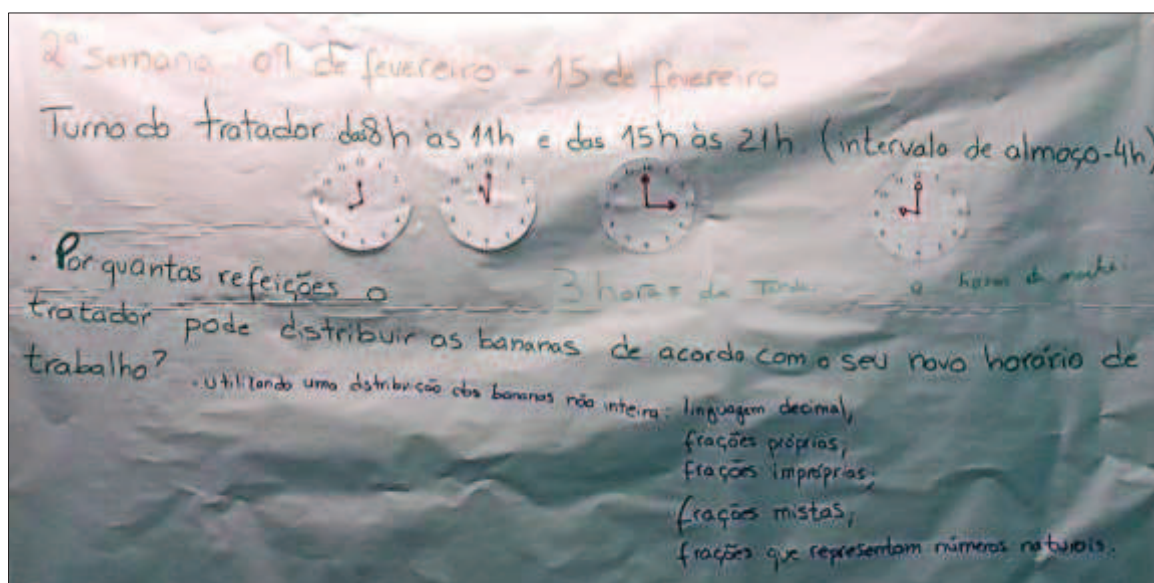 2ª Semana 09 de fevereiro - 15 de fevereiro
Turno do tratador das 8h às 11h e das 15h às 21h (intervalo de almoço-4h)
. Por quantas refeições o
3 horas da Tarde. 9 horas da noite.
tratador pode distribuir as bananas de acordo com o seu novo horário de
trabalho?
. Utilizando uma distribuição das bananas não inteira: linguagem decimal,
frações próprias,
frações impróprias;
frações mistas,
frações que representam números naturais.